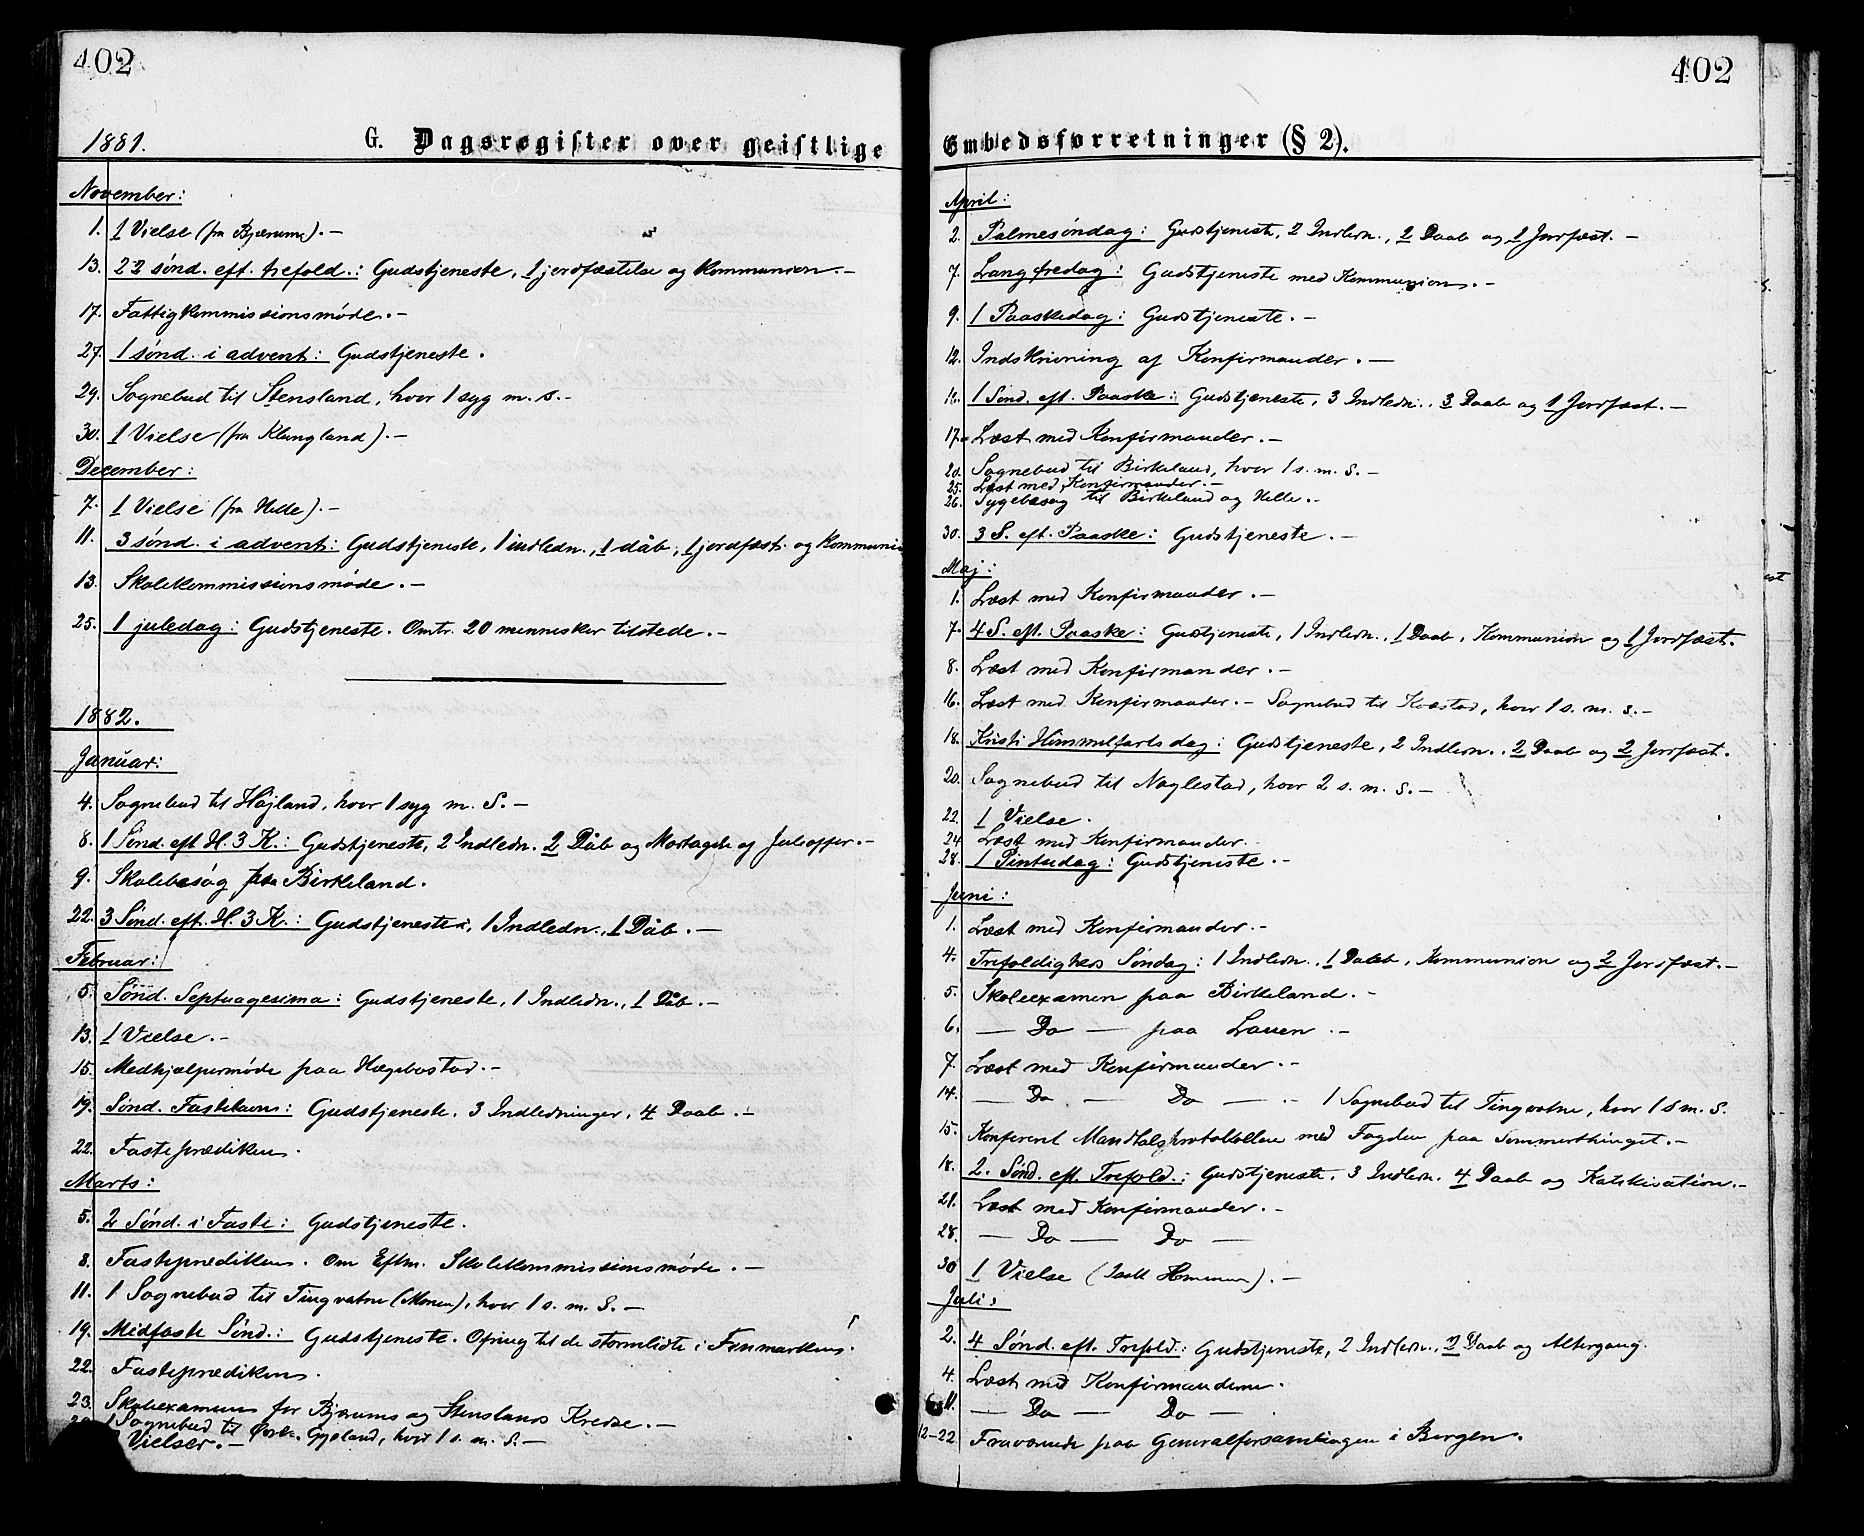 402
1881.
G. Dagsregister over geistlige
November:
1. 1 Vielse (fra Bjærum). -
13. 22 sønd. eft. trefold.: Gudstjeneste, 1 jordfæstelse og kommunion. -
17. Fattigkommissionsmøde. -
27. 1 sønd. i advent: Gudstjeneste.
29. Sognebud til Stensland, hvor 1 syg m. s. -
30. 1 Vielse (fra Klungland). -
December:
7. 1 Vielse (fra Helle). -
11. 3 sønd. i advent: Gudstjeneste, 1 indledn., 1 dåb, 1 jordfæst. og kommuni
13. Skolekommissionsmøde. -
25. 1 juledag: Gudstjeneste. Omtr. 20 mennesker tilstede. -
1882.
Januar:
4. Sognebud til Højland, hvor 1 syg m. S. -
8. 1 Sønd. eft. H. 3 K.: Gudstjeneste, 2 Indledn. 2 Dåb og Mortagelse af Juleoffer. -
9. Skolebesøg paa Birkeland.
22. 3 Sønd. eft. H. 3 K.: Gudstjeneste, 1 Indledn., 1 Dåb. -
Februar:
5. Sønd. Septuagesima: Gudstjeneste, 1 Indledn., 1 Dåb. -
13. 1 Vielse. -
15. Medhjælpermøde paa Hægebostad. -
19. Sønd. Fastelavns: Gudstjeneste, 3 Indledninger, 4 Daab. -
22. Fasteprædiken.
Marts:
5. 2 Sønd. i Faste: Gudstjeneste.
8. Fasteprædiken. Om Eftm. Skolekommissionsmøde. -
11. 1 Sognebud til Tingvatne (Monen), hvor 1 s. m. S. -
19. Midfaste Sønd.: Gudstjeneste. Ofring til de stormlidte i Finmarken.
22. Fasteprædiken.
23. Skoleexamen for Bjærums og Stenslands Kredse. -
1 Sognebud til Øvre Gyland, hvor 1 s. m. S. -
Vielser. -
402
Embedsforretninger (§ 2).
April:
2. Palmesøndag: Gudstjeneste, 2 Indledn., 2 Daab og 1 Jordfæst. -
7. Langfredag: Gudstjeneste med Kommunion. -
9. 1 Paaskedag: Gudstjeneste. -
12. Indskrivning af Konfirmander. -
16. 1 Sønd. eft. Paaske: Gudstjeneste, 3 Indledn., 3 Daab og 1 Jordfæst. -
17. Læst med Konfirmander. -
20. Sognebud til Birkeland, hvor 1 s. m. S. -
25. Læst med Konfirmander. -
26. Sygebesøg til Birkeland og Helle. -
30. 3 S. eft. Paaske: Gudstjeneste. -
Maj:
1. Læst med Konfirmander. -
7. 4 S. eft. Paaske: Gudstjeneste, 1 Indledn., 1 Daab, Kommunion og 1 Jordfæst.
8. Læst med Konfirmander. -
16. Læst med Konfirmander. - Sognebud til Kvæstad, hvor 1 s. m. S. -
18. Kristi Himmelfartsdag: Gudstjeneste, 2 Indledn., 2 Daab og 2 Jordfæst.
20. Sognebud til Naglestad, hvor 2 s. m. S. -
22. 1 Vielse.
24. Læst med Konfirmander.
28. 1 Pintsedag: Gudstjeneste. -
Juni:
1. Læst med Konfirmander. -
4. Trefoldigheds Søndag: 1 Indledn., 1 Daab, Kommunion og 2 Jordfæst. -
5. Skoleexamen paa Birkeland. -
6. — Do — paa Lauen. -
7. Læst med Konfirmander. -
14. — Do — Do — - 1 Sognebud til Tingvatne, hvor 1 S m. S.
15. Konfereret Mandtalsprotokollen med Fogden paa Sommerthinget. -
18. 2. Sønd. eft. Trefold.: Gudstjeneste, 3 Indledn. 4 Daab og Katekisation. -
21. Læst med Konfirmander. -
28. — Do — Do —
30. 1 Vielse ( ). -
Juli:
2. 4 Sønd. eft. Trefold.: Gudstjeneste, 2 Indledn., 2 Daab og Altergang.
4. Læst med Konfirmanderne.
11. — Do — Do —
12-22 Fraværende paa Generalforsamlingen i Bergen.